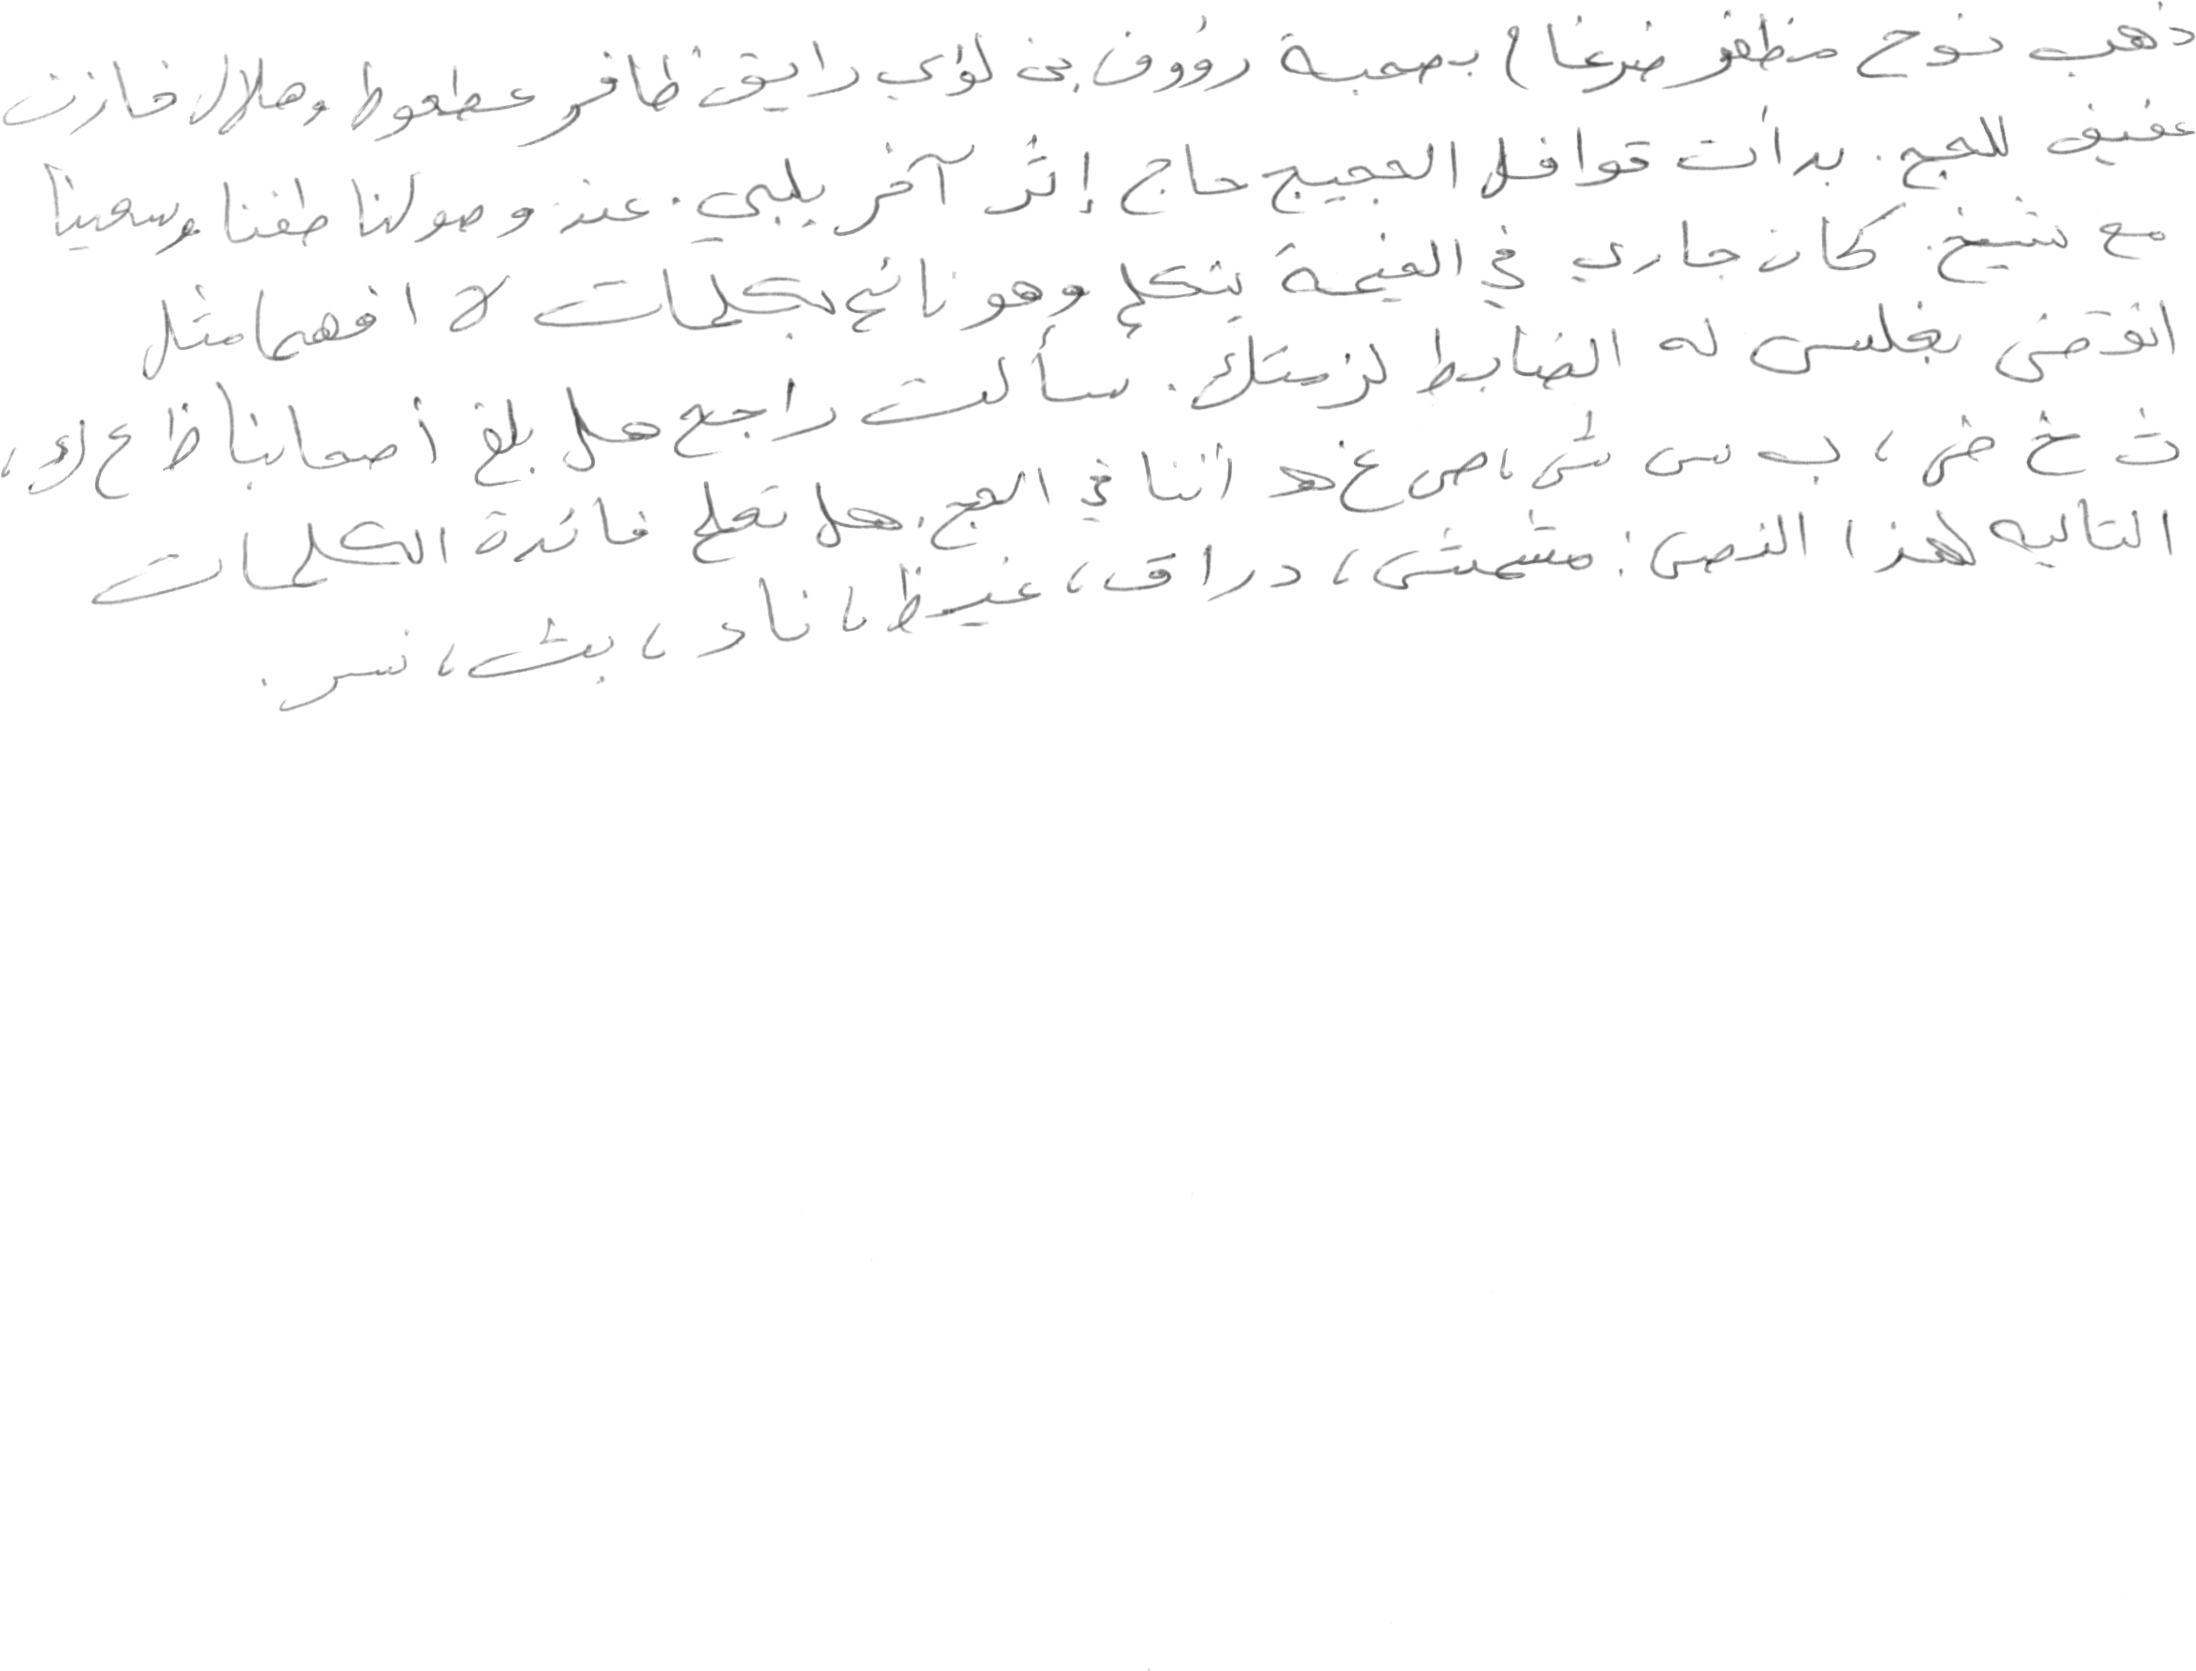 ذهب نوح مظفر ضرغام بصحبة رؤوف بن لؤي رايق ظافر عطعوط وهلال خازن
عفيف للحج. بدأت قوافل الحجيج حاج إثر آخر يلبي. عند وصولنا طفنا وسعينا
مع شيخ. كان جاري في الخيمة يتكلم وهو نائم بكلمات لا افهمها مثل
انقض بغلس له الضابط لزستك. سألت راجح هل بلغ أصحابنا ظ ع ك،
ث خ ض، ب س ش، ص غ هـ أننا في الحج. هل تعلم فائدة الكلمات
التاليه لهذا النص: مشمش، دراق، غيظ، ناد، بث، نسر.